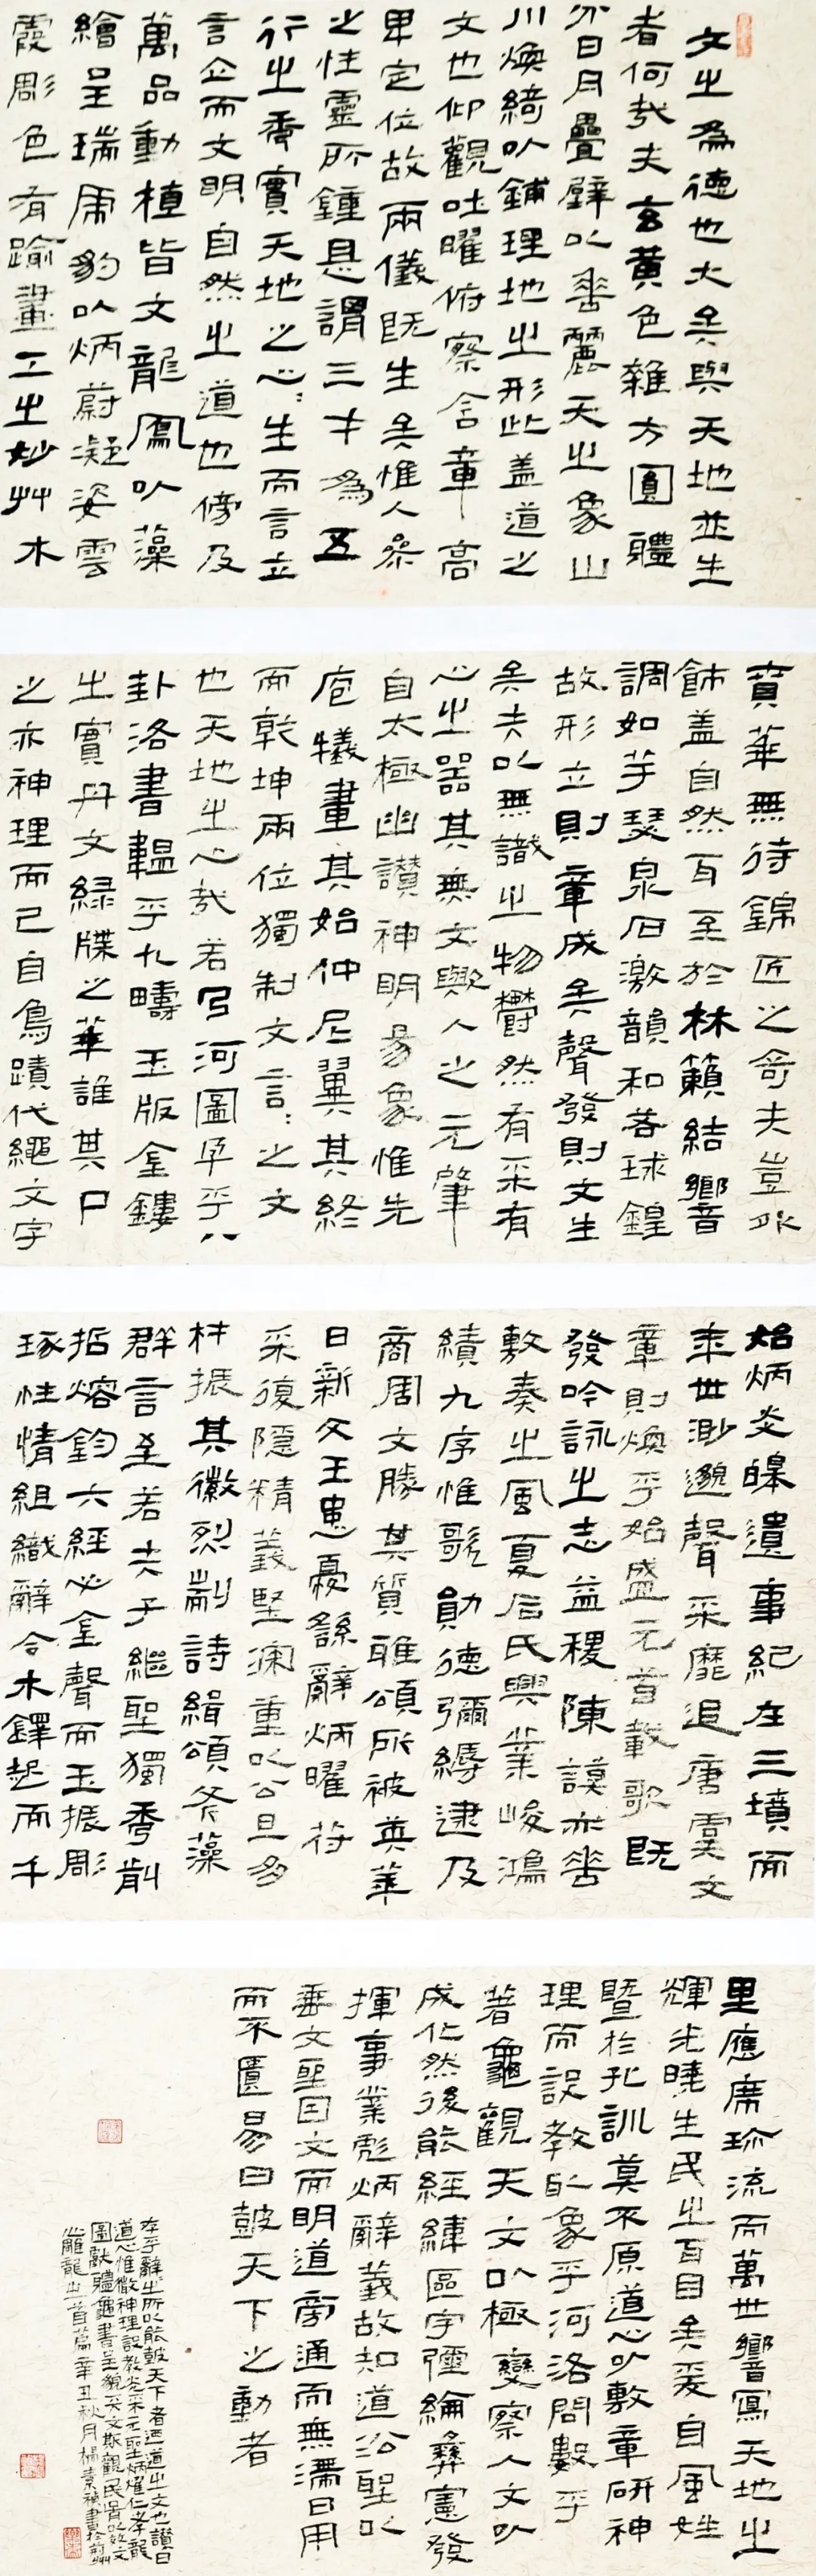 文之為德也大矣與天地並生
者何哉夫玄黃色雜方圓體
分日月疊璧以垂麗天之象山
川煥綺以鋪理地之形此盖道之
文也仰觀吐曜俯察含章高
卑定位故兩儀既生矣惟人參
之性靈所鍾是謂三才為五
行之秀實天地之心:生而言立
言立而文明自然之道也傍及
萬品動植皆文龍鳳以藻
繪呈瑞虎豹以炳蔚凝姿雲
霞彫色有踰畫工之妙艸木
賁華無待錦匠之奇夫豈外
飾盖自然耳至於林籟結響
調如竽瑟泉石激韻和若球鍠
故形立則章成矣聲發則文生
矣夫以無識之物鬱然有采有
心之器其無文歟人之元肇
自太極幽讚神明易象惟先
庖犧畫其始仲尼翼其終
而乾坤兩位獨制文言:之文
也天地之心哉若乃河圖孕乎八
卦洛書韞乎九疇玉版金鏤
之實丹文緑牒之華誰其尸
之亦神理而已自鳥蹟代繩文字
始炳炎皞遺事紀在三墳而
年世渺邈聲采靡追唐虞文
章則煥乎始盛元首載歌既
發吟詠之志益稷陳謨亦垂
敷奏之風夏后氏興業峻鴻
績九序惟歌勛德彌縟逮及
商周文勝其質雅頌所被英華
日新文王患憂繇辭炳曜符
采復隱精義堅深重以公旦多
材振其徽烈剬詩緝頌斧藻
群言至若夫子繼聖獨秀前
哲熔鈞六經必金聲而玉振彫
琢性情組織辭令木鐸起而千
里應席珍流而萬世響寫天地之
輝光曉生民之耳目矣爰自風姓
暨於孔訓莫不原道心以敷章研神
理而設教取象乎河洛問數乎
蓍龜觀天文以極變察人文以
成化然後能經緯區宇彌綸彝憲發
揮事業彪炳辭義故知道沿聖以
垂文聖因文而明道旁通而無濡日用
而不匱易曰鼓天下之動者
存乎辭辭之所以能鼓天下者迺道之文也讚曰
道心惟微神理設教炎采元聖炳燿仁孝龍
圖獻體龜書呈貌天文斯觀民胥以效文
心雕龍之首篇辛丑秋月楊素禎書於